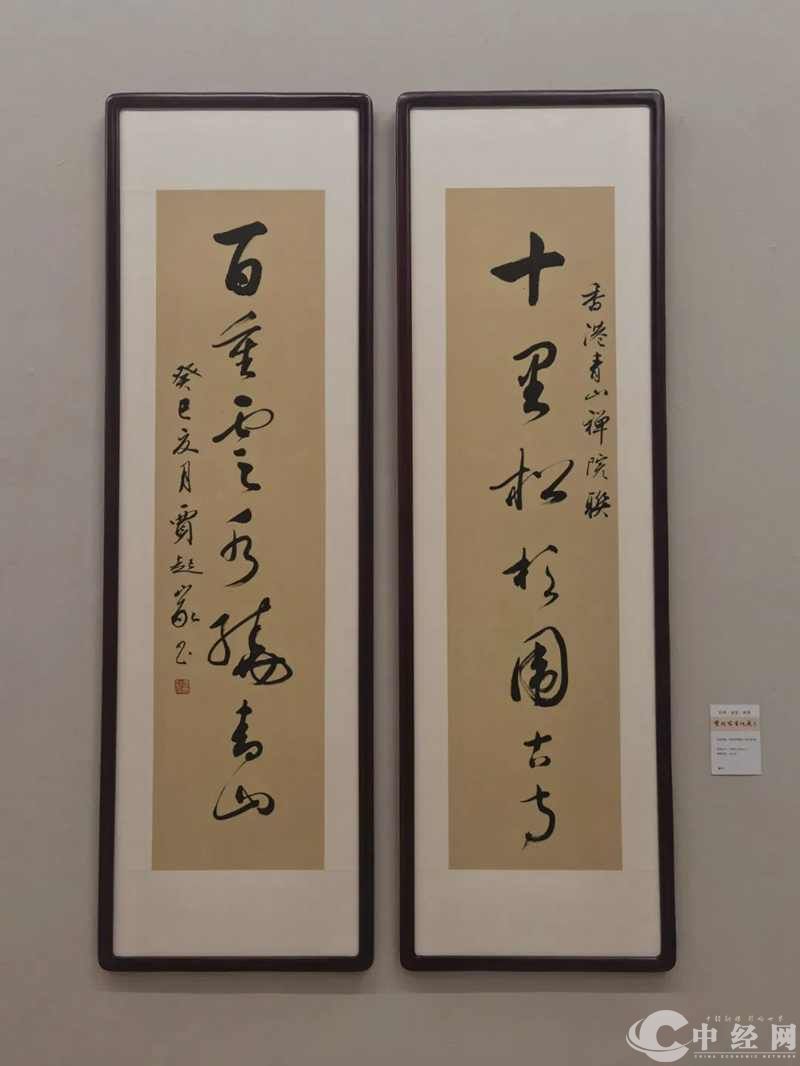 十里松杉圍古寺
香港青山禅院联
百重雲水繞青山
癸巳亥月賈起家书
中经网
CHINA ECONOMIC NETWORK